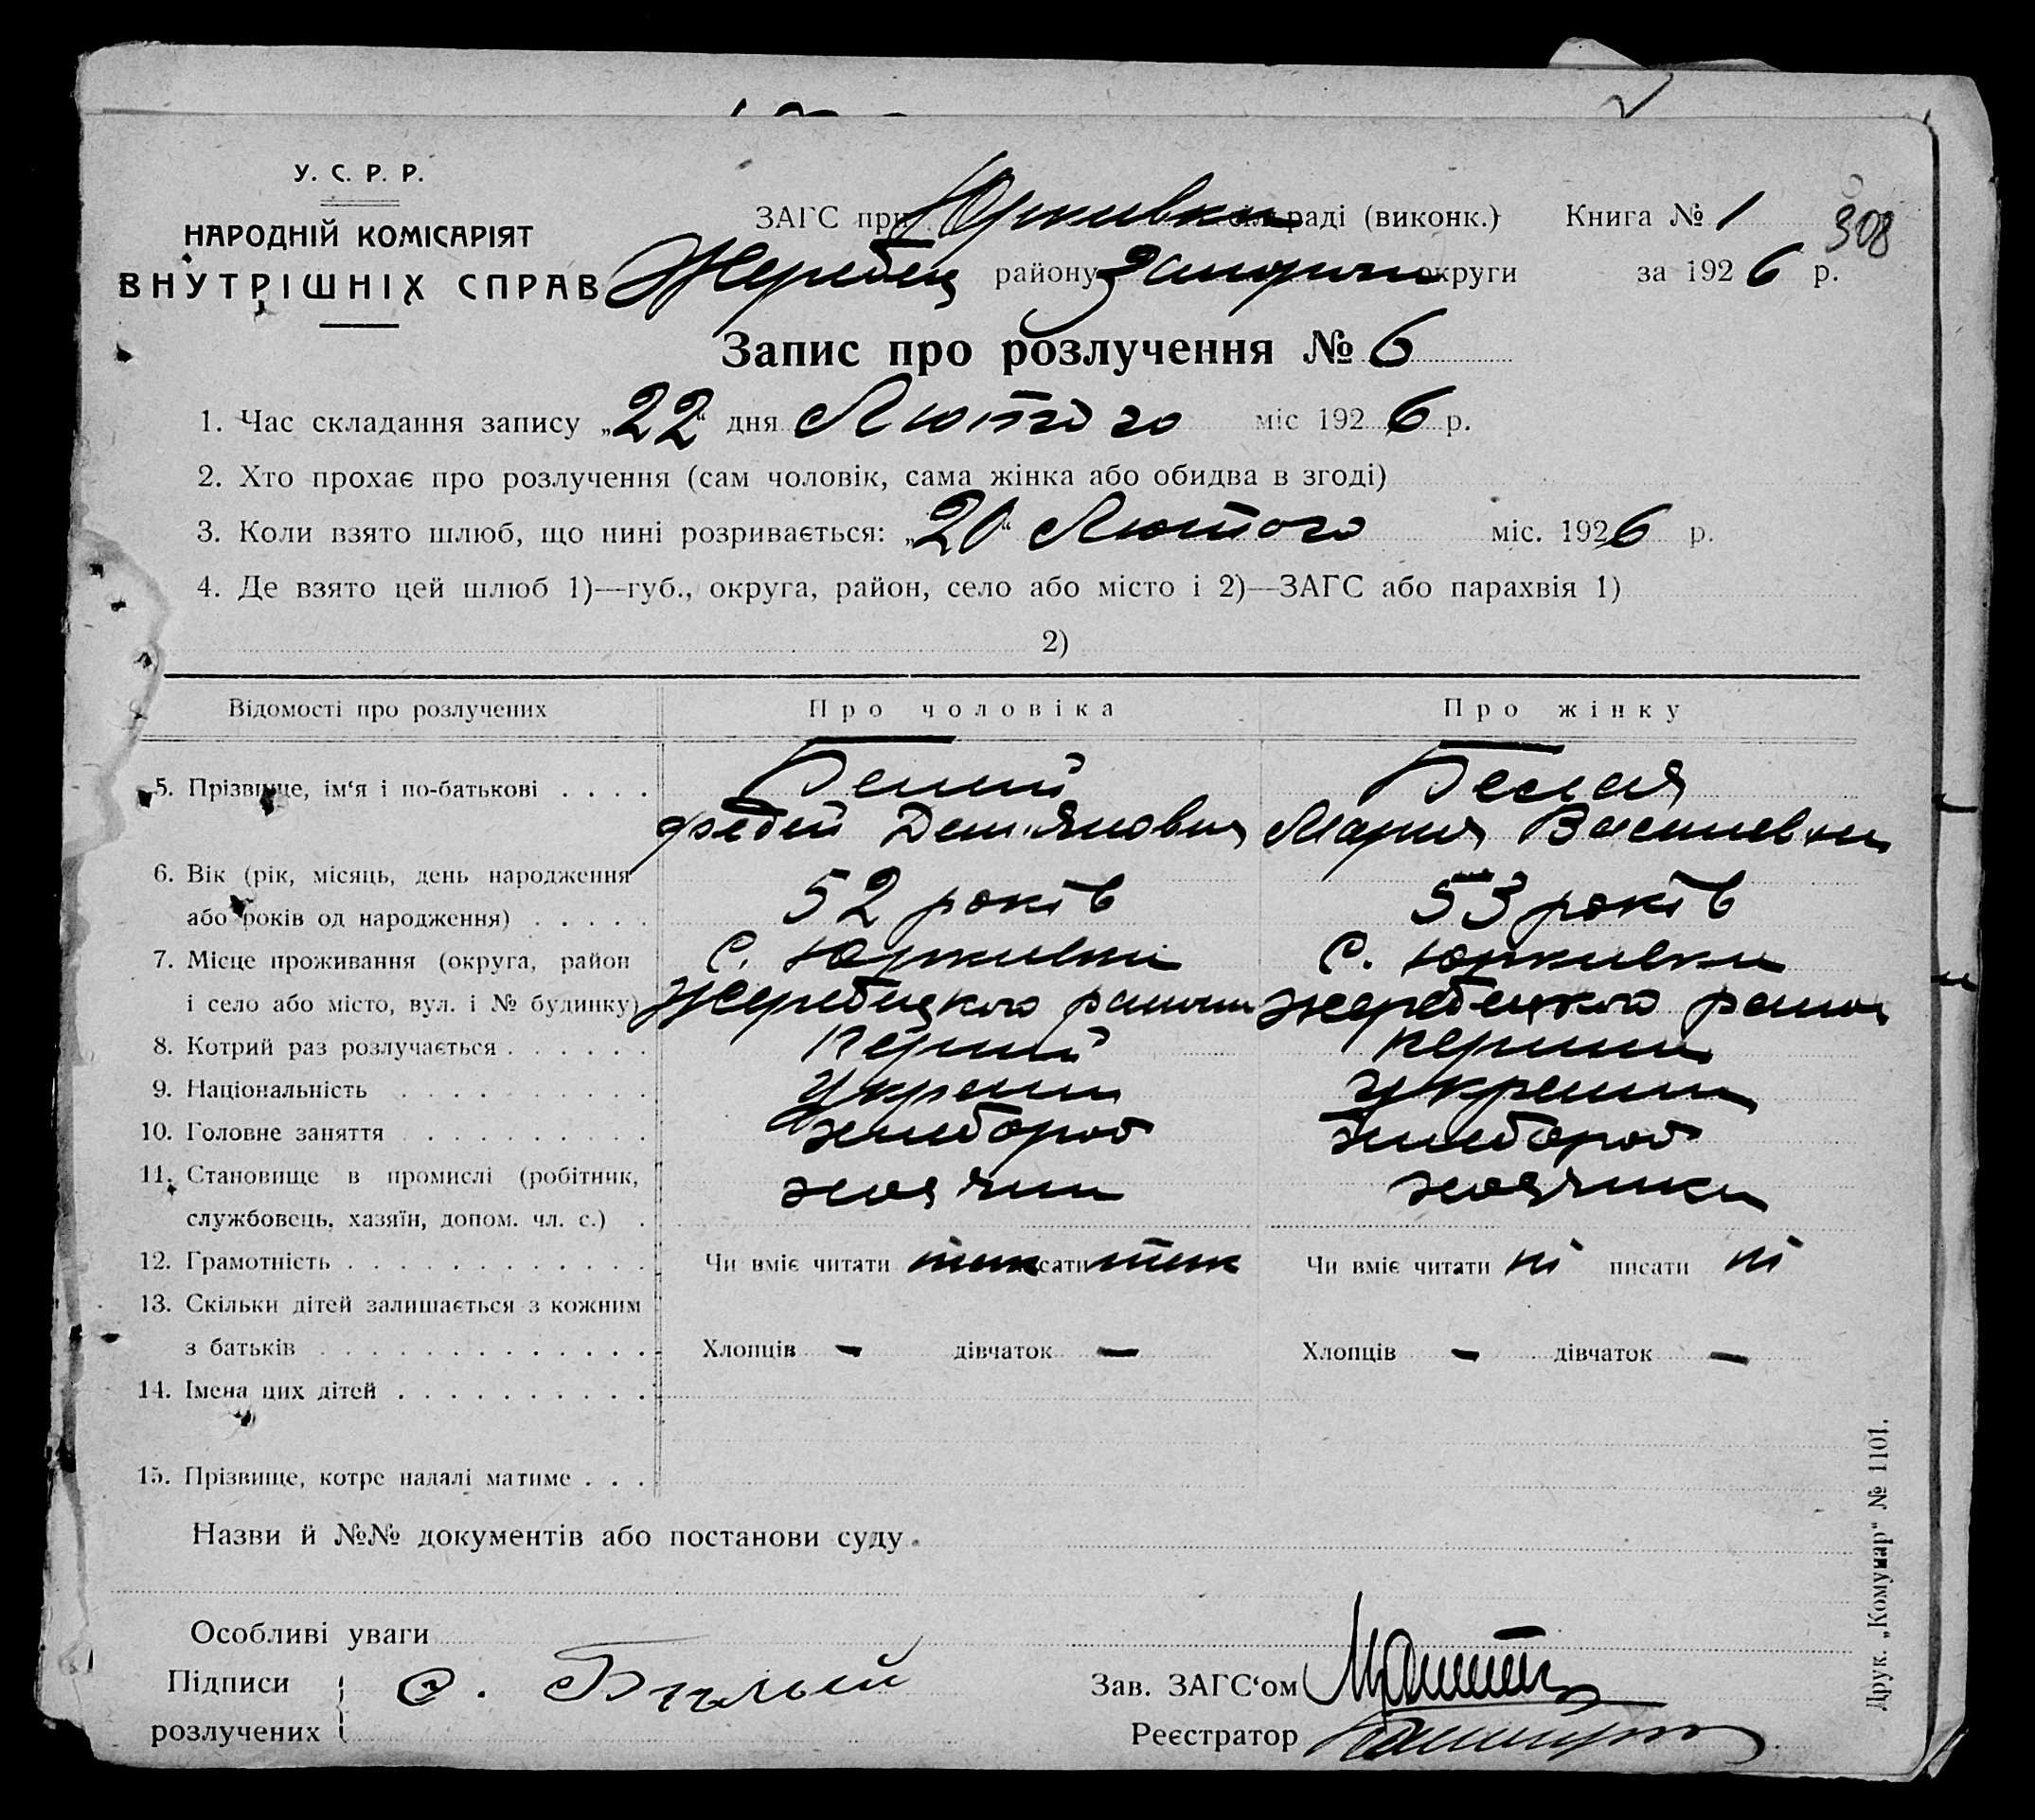 308
У. С. Р. Р.
НАРОДНІЙ КОМІСАРІЯТ
ВНУТРІШНІХ СПРАВ
ЗАГС при Юркивки сіль раді (виконк.) Книга № 1
Жеребец району Запорижо округи за 1926 р.
Запис про розлучення № 6
1. Час складання запису „22“ дня Лютого міс 1926 р.
2. Хто прохає про розлучення (сам чоловік, сама жінка або обидва в згоді)
3. Коли взято шлюб, що нині розривається: „20“ Лютого міс. 1926 р.
4. Де взято цей шлюб 1)—губ., округа, район, село або місто і 2)—ЗАГС або парахвія 1)
2)
Відомості про розлучених Про чоловіка Про жінку
5. Прізвище, ім‘я і по-батькові . . . . Белий Белая
Демянович Мария Василевна
6. Вік (рік, місяць, день народження
або років од народження) . . . . . 52 років 53 років
7. Місце проживання (округа, район с. Юркивки с. Юркивки
і село або місто, вул. і № будинку) Жеребецкого района Жеребецкого района
8. Котрий раз розлучається . . . . . . Перший Перший
9. Національність . . . . . . . . . . украин украин
10. Головне заняття . . . . . . . . . хлебороб хлебороб
11. Становище в промислі (робітник, хозяин хозяйка
службовець, хазяїн, допом. чл. с.) .
12. Грамотність . . . . . . . . . . . . . Чи вміє читати так писати так Чи вміє читати ні писати ні
13. Скільки дітей залишається з кожним
з батьків . . . . . . . . . . . . . . Хлопців – дівчаток – Хлопців – дівчаток –
14. Імена цих дітей . . . . . . . . . .
15. Прізвище, котре надалі матиме . . .
Назви й №№ документів або постанови суду
Особливі уваги
Підписи
розлучених
Зав. ЗАГС‘ом
Реєстратор
Друк. „Комунар“ № 1101.